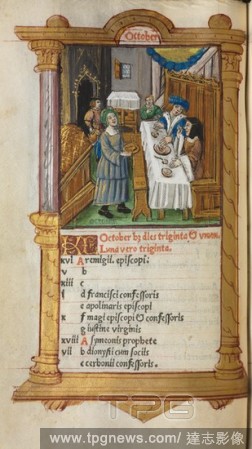 October
KL October hʒ dies triginta & vnum.
Luna vero triginta.
xvi A remigii. episcopi.
v b
xiii c
ii d francisci confessoris
e apolinaris episcopi
x f magi episcopi & confessoris
g iustine virginis
xviii A symeonis prophete
vii b dionysii cum sociis
c cerbonii confessoris.
TPG
www.tpgnews.com / 達志影像